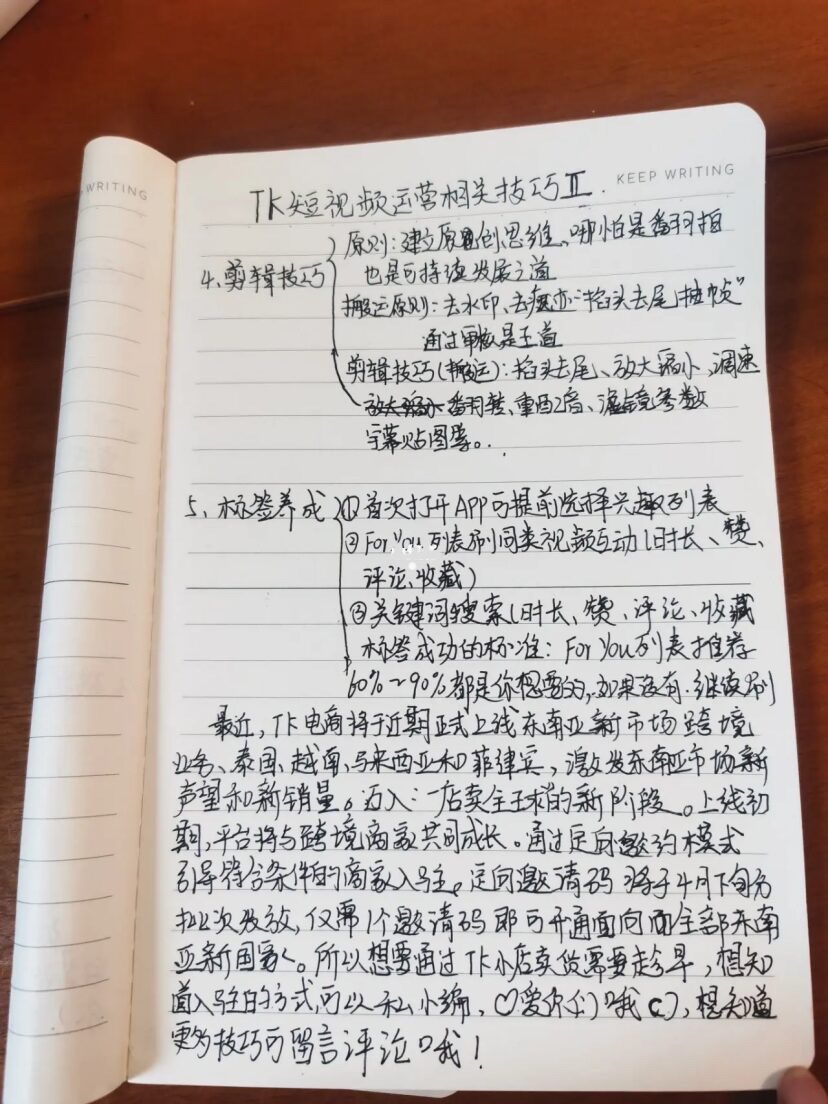 WRITING
KEEP WRITING
TK短视频运营相关技巧Ⅱ.
原则:建立原创思维、哪怕是番羽拍
4、剪辑技巧
也是可持续发展之道
搬运原则:去水印、去痕迹“掐头去尾抽帧”
通过审核是王道
剪辑技巧(搬运):掐头去尾、放大缩小、调速
放大缩小 番羽转、重配音、滤镜参数
字幕贴图等。.
5、标签养成 ①首次打开APP可提前选择兴趣列表
②For You 列表刷同类视频互动(时长、赞、
评论、收藏)
③关键词搜索(时长、赞、评论、收藏
标签成功的标准:For You列表推荐
60%~90%都是你想要的,如果没有.继续刷
最近,TK电商将于近期正式上线东南亚新市场跨境
业务、泰国、越南、马来西亚和菲律宾,激发东南亚市场新
声望和新销量。迈入:“一店卖全球”的新阶段。上线初
期,平台将与跨境商家共同成长。通过定向邀约模式
引导符合条件的商家入驻。定向邀请码将于4月下旬分
批次发放,仅需1个邀请码即可开通面向面全部东南
亚新国家。所以想要通过TK小店卖货需要趁早,想知
道入驻的方式,可以私小编,♡爱你们哦,想知道
更多技巧可留言评论哦!